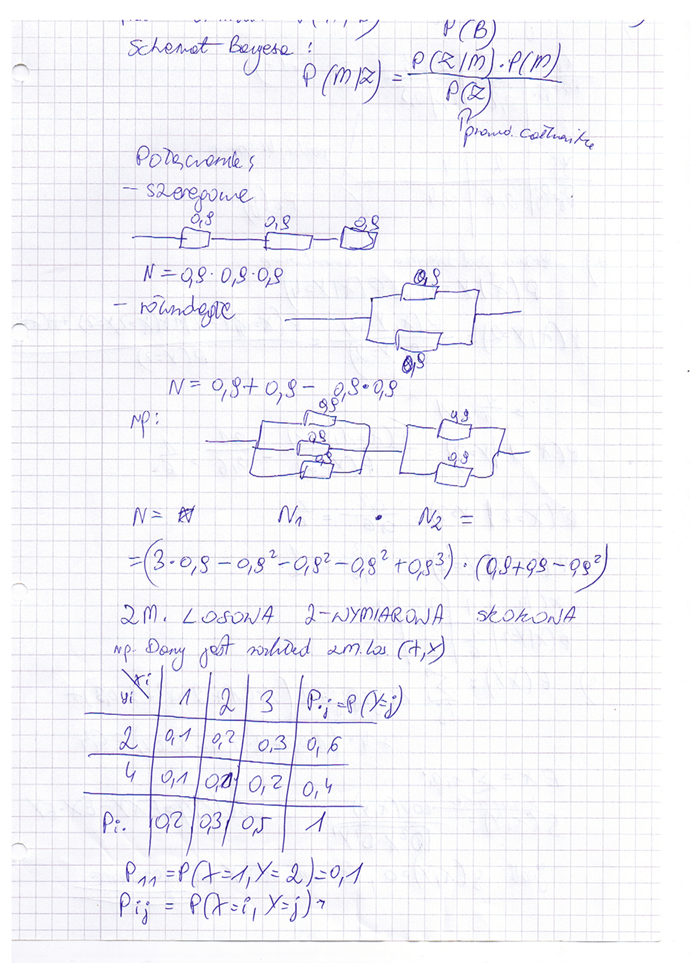 P(B)
Schemat Bayesa :
P(M/Z) = P(Z/M) · P(M)
P(Z)
prawd. całkowite
Połączenie:
- szeregowe
0,9 0,9 0,9
N = 0,9 · 0,9 · 0,9
- równoległe
0,9
0,9
N = 0,9 + 0,9 - 0,9 · 0,9
np:
0,9 0,9
0,9
0,9 0,9
N = N1 · N2 =
= (3 · 0,9 - 0,9² - 0,9² - 0,9² + 0,9³) · (0,9 + 0,9 - 0,9²)
ZM. LOSOWA 2-WYMIAROWA SKOKOWA
np. Dany jest rozkład zm. los. (X,Y)
xi
yi 1 2 3 P.j = P(Y=j)
2 0,1 0,2 0,3 0,6
4 0,1 0,1 0,2 0,4
Pi. 0,2 0,3 0,5 1
P11 = P(X=1, Y=2) = 0,1
Pij = P(X=i, Y=j)